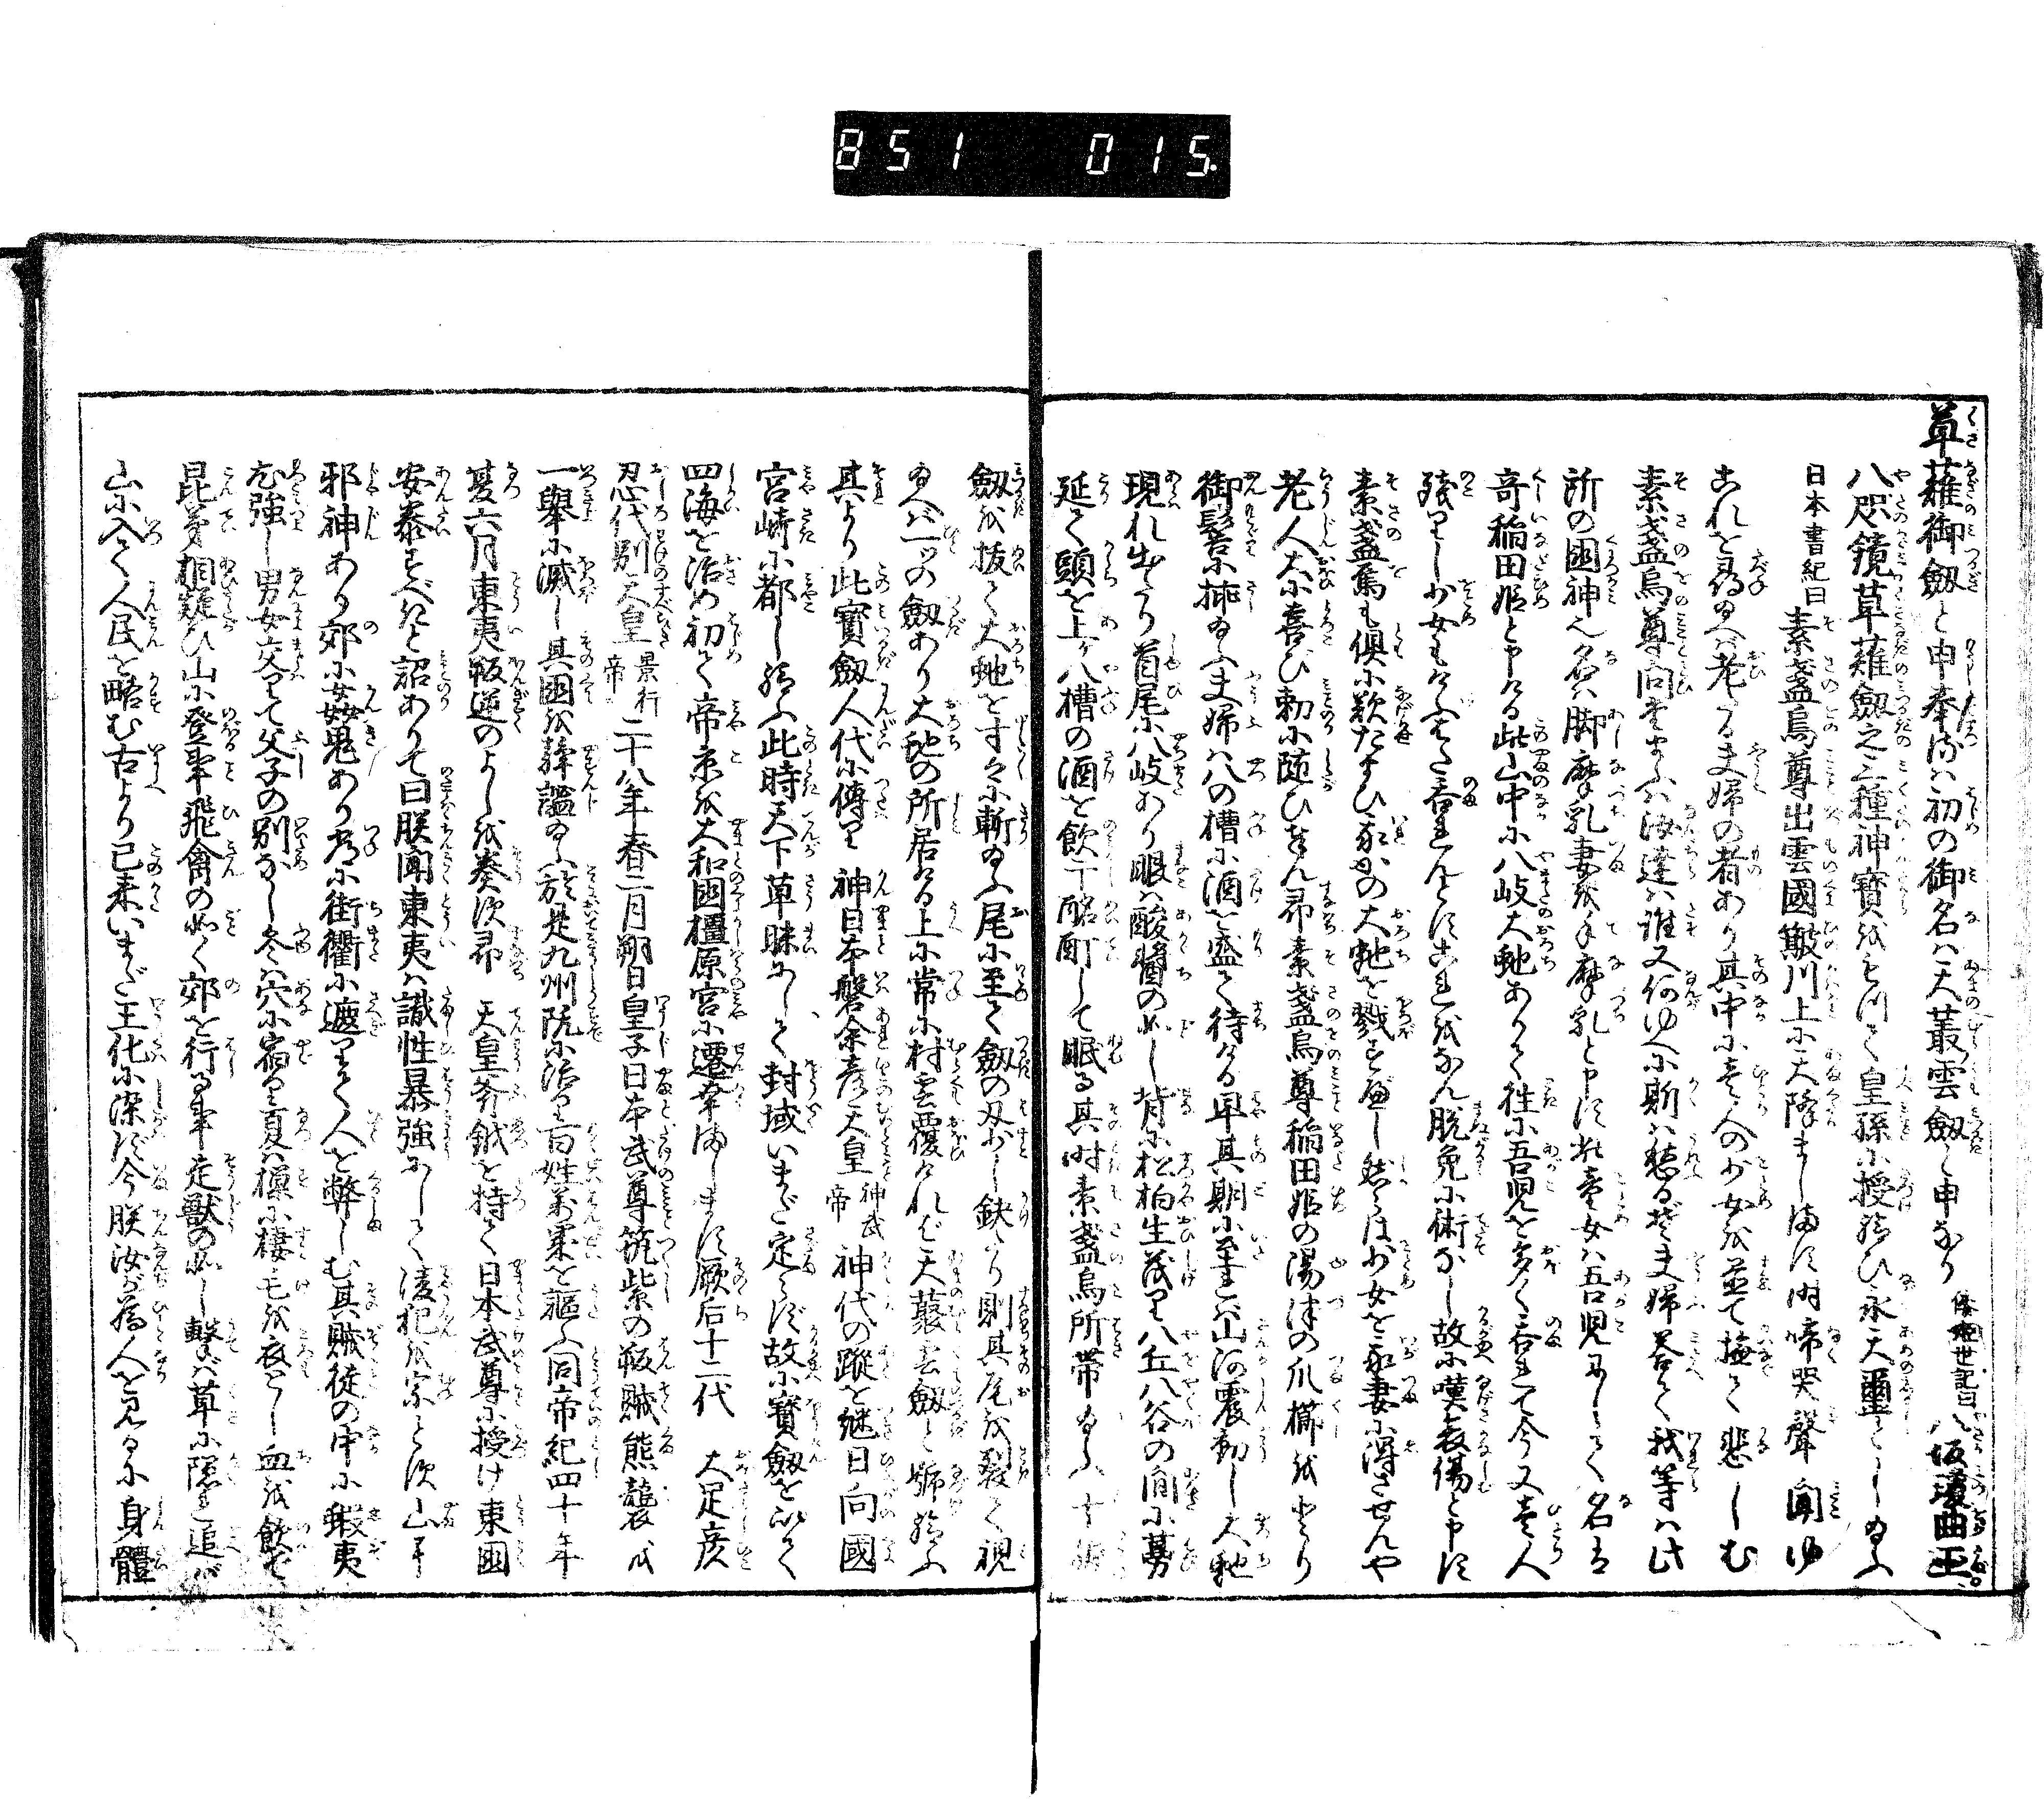 851 015.
草薙御劔と申奉るは初の御名は天叢雲劔と申なり 倭姫世記曰 八坂瓊曲玉
八咫鏡草薙劔之三種神寶をもつて皇孫に授給ひ永天璽としたまふ
日本書紀曰 素盞烏尊出雲國簸川上に天降まします時啼哭聲聞ゆ
これを尋たまへば老たる夫婦の者あり其中に壱人の少女を並て撫て悲しむ
素盞烏尊問たまふは汝達は誰又何ゆへに斯は愁るぞ夫婦答て我等は此
所の國神也名は脚摩乳妻を手摩乳と申す此童女は吾児にして名は
奇稲田姫と申ける此山中に八岐大虵ありて往に吾児を多く呑れて今又壱人
残りし少女もけふはた呑れんとすこれをなん脱免に術なし故に嘆哀傷と申す
素盞烏も倶に歎たまひ我かの大虵を戮すべし然らは少女を我妻に得させんや
老人大に喜び勅に随ひける即素盞烏尊稲田姫の湯津の爪櫛をとり
御髻に挿たまふ夫婦は八の槽に酒を盛て待ける早其期に至れば山河震動し大虵
現れ出たり首尾に八岐あり眼は酸醤の如し背に松柏生茂り八丘八谷の間に蔓
延て頭を上げ八槽の酒を飲干酩酊して眠る其時素盞烏所帯たまふ十握
劔を抜て大虵を寸々に斬たまふ尾に至て劔の刃少し鈌たり則其尾を裂て視
たまへば一ツの劔あり大虵の所居る上に常に村雲覆ければ天藂雲劔と号給ふ
其より此寶劔人代に傳り 神日本磐余彦天皇 神武帝 神代の蹤を継日向國
宮崎に都し給ふ此時天下草昧にして封域いまだ定らず故に寳劔を以て
四海を治め初て帝京を大和國橿原宮に遷幸ましまます厥后十二代 大足彦
忍代別天皇 景行帝 二十八年春二月朔日皇子日本武尊筑紫の叛賊熊襲を
一擧に滅し其國を鎮謐たまふ於是九州既に治り百姓萬業を謳ふ同帝紀四十年
夏六月東夷叛逆のよしを奏す即 天皇斧鉞を持て日本武尊に授け東國
安泰すべきと詔ありて曰朕聞東夷は識性暴強にして凌犯を宗とす山に
邪神あり郊に姦鬼あり考に街衢に遮りて人を弊しむ其賊徒の中に蝦夷
尤強し男女交りて父子の別なし冬は穴に宿り夏は樔に棲毛を衣とし血を飲て
昆弟相疑ひ山に登事飛禽の如く郊を行る事走獣の如し撃ば草に隠れ追ば
山に入て人民を略む古より已来いまだ王化に潔ず今朕汝が為人を見るに身體